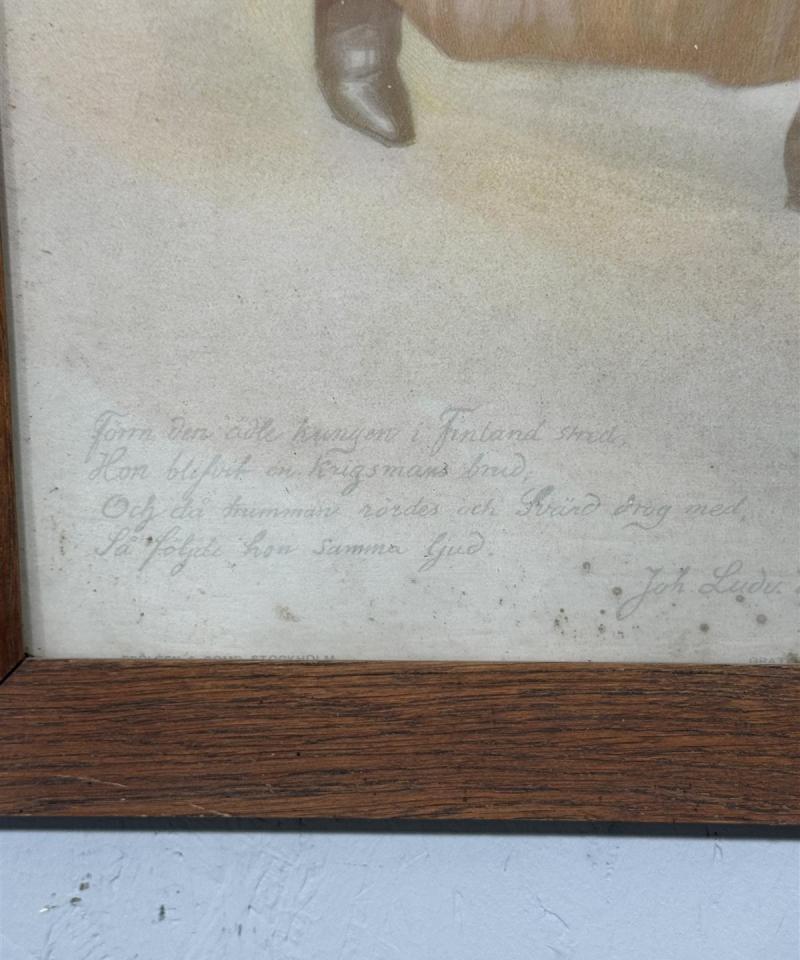 Förrn den ädle kungen i Finland stred,
Hon blefvit en krigsmans brud,
Och då trumman rördes och Svärd drog med,
Så följde hon samma ljud.
Joh Ludv.
& COMP. STOCKHOLM